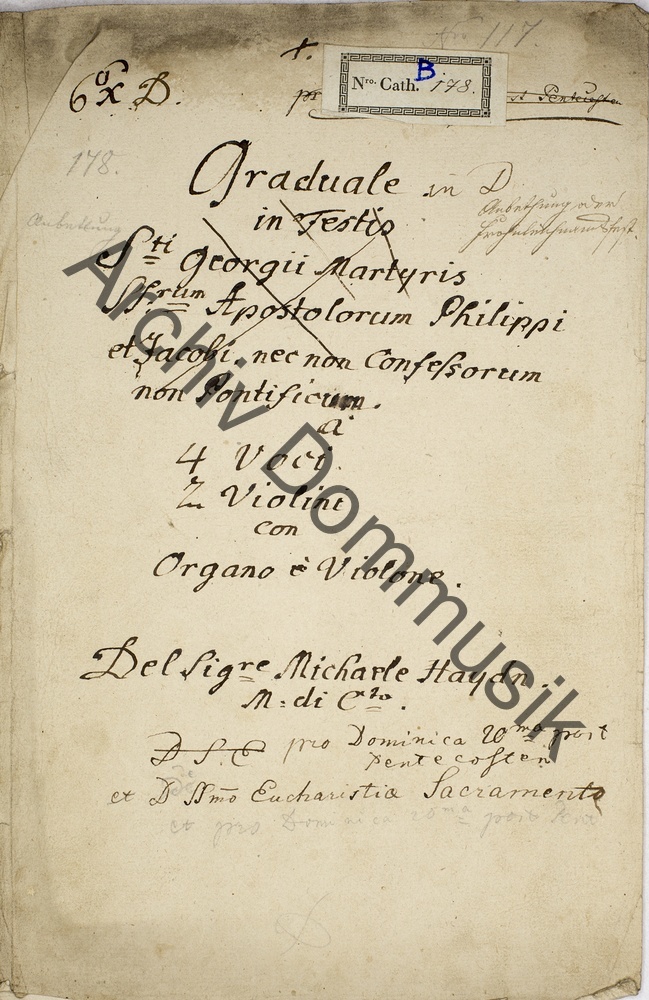 117.
6 D.
Nro. Cath. B 178.
st Pentecosten
178.
Graduale in D
Anbethung oder
in Festis
Anbettung
Sti Georgii Martyris
SS.rum Apostolorum Philippi
et Jacobi, nec non Confessorum
non Pontificum.
à
4 Voci.
2 Violini
con
Organo è Violone.
Del Sigre Michaele Haydn.
M: di Cto.
D S. C pro Dominica 20ma post
Pentecosten
et D SSmo Eucharistiæ Sacramento
et pro Dominica 20ma post Pent
Archiv Dommusik